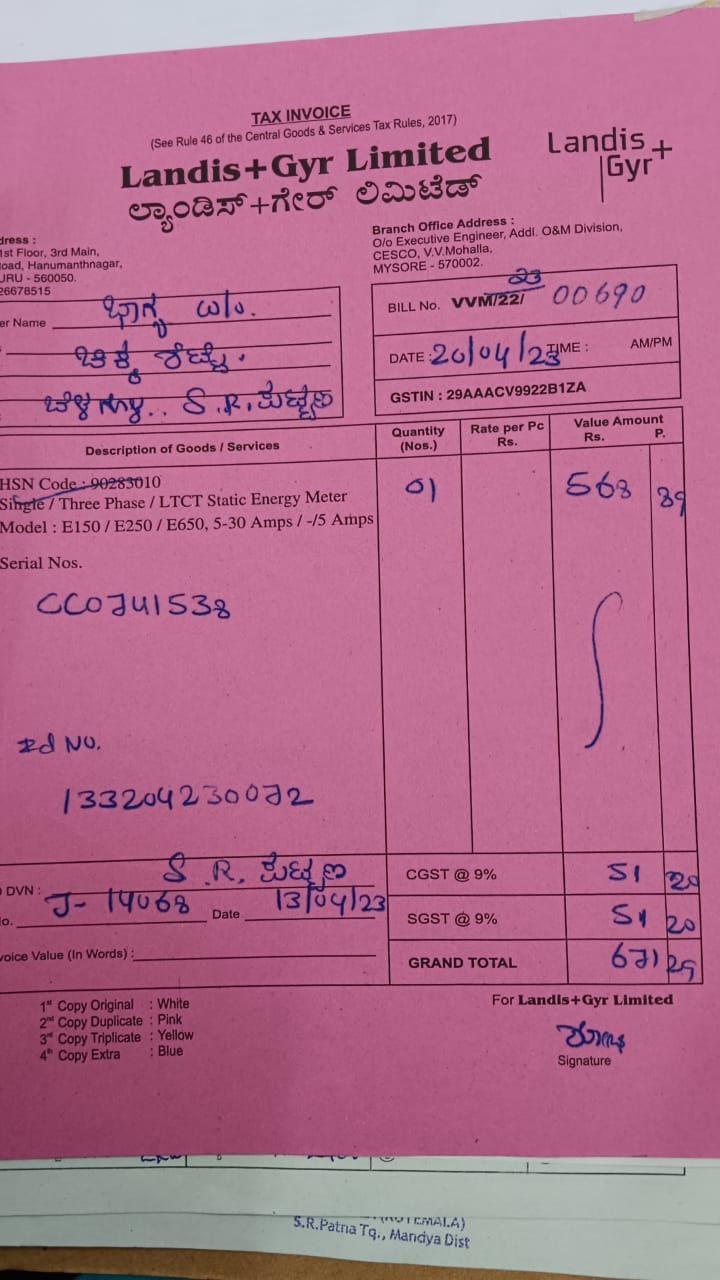 TAX INVOICE
(See Rule 46 of the Central Goods & Services Tax Rules, 2017)
Landis+Gyr Limited
Landis
Gyr+
ಲ್ಯಾಂಡಿಸ್+ಗೇರ್ ಲಿಮಿಟೆಡ್
dress :
1st Floor, 3rd Main,
oad, Hanumanthnagar,
URU - 560050.
26678515
Branch Office Address :
O/o Executive Engineer, Addl. O&M Division,
CESCO, V.V.Mohalla,
MYSORE - 570002.
er Name ಭಾಗ್ಯ w/o.
ಚಿಕ್ಕ
S.R.
23
BILL No. VVM/22/ 00690
DATE : 20/04/23 TIME : AM/PM
GSTIN : 29AAACV9922B1ZA
Description of Goods / Services
Quantity (Nos.)
Rate per Pc Rs.
Value Amount
Rs. P.
HSN Code : 90283010
Single / Three Phase / LTCT Static Energy Meter
Model : E150 / E250 / E650, 5-30 Amps / -/5 Amps
01
568 39
Serial Nos.
CC0741538
Id No.
133204230072
DVN : S.R.
o. J- 14068 Date 13/04/23
voice Value (In Words) :
CGST @ 9% 51 20
SGST @ 9% 51 20
GRAND TOTAL 671 29
1st Copy Original : White
2nd Copy Duplicate : Pink
3rd Copy Triplicate : Yellow
4th Copy Extra : Blue
For Landis+Gyr Limited
Signature
S.R.Patna Tq., Mandya Dist